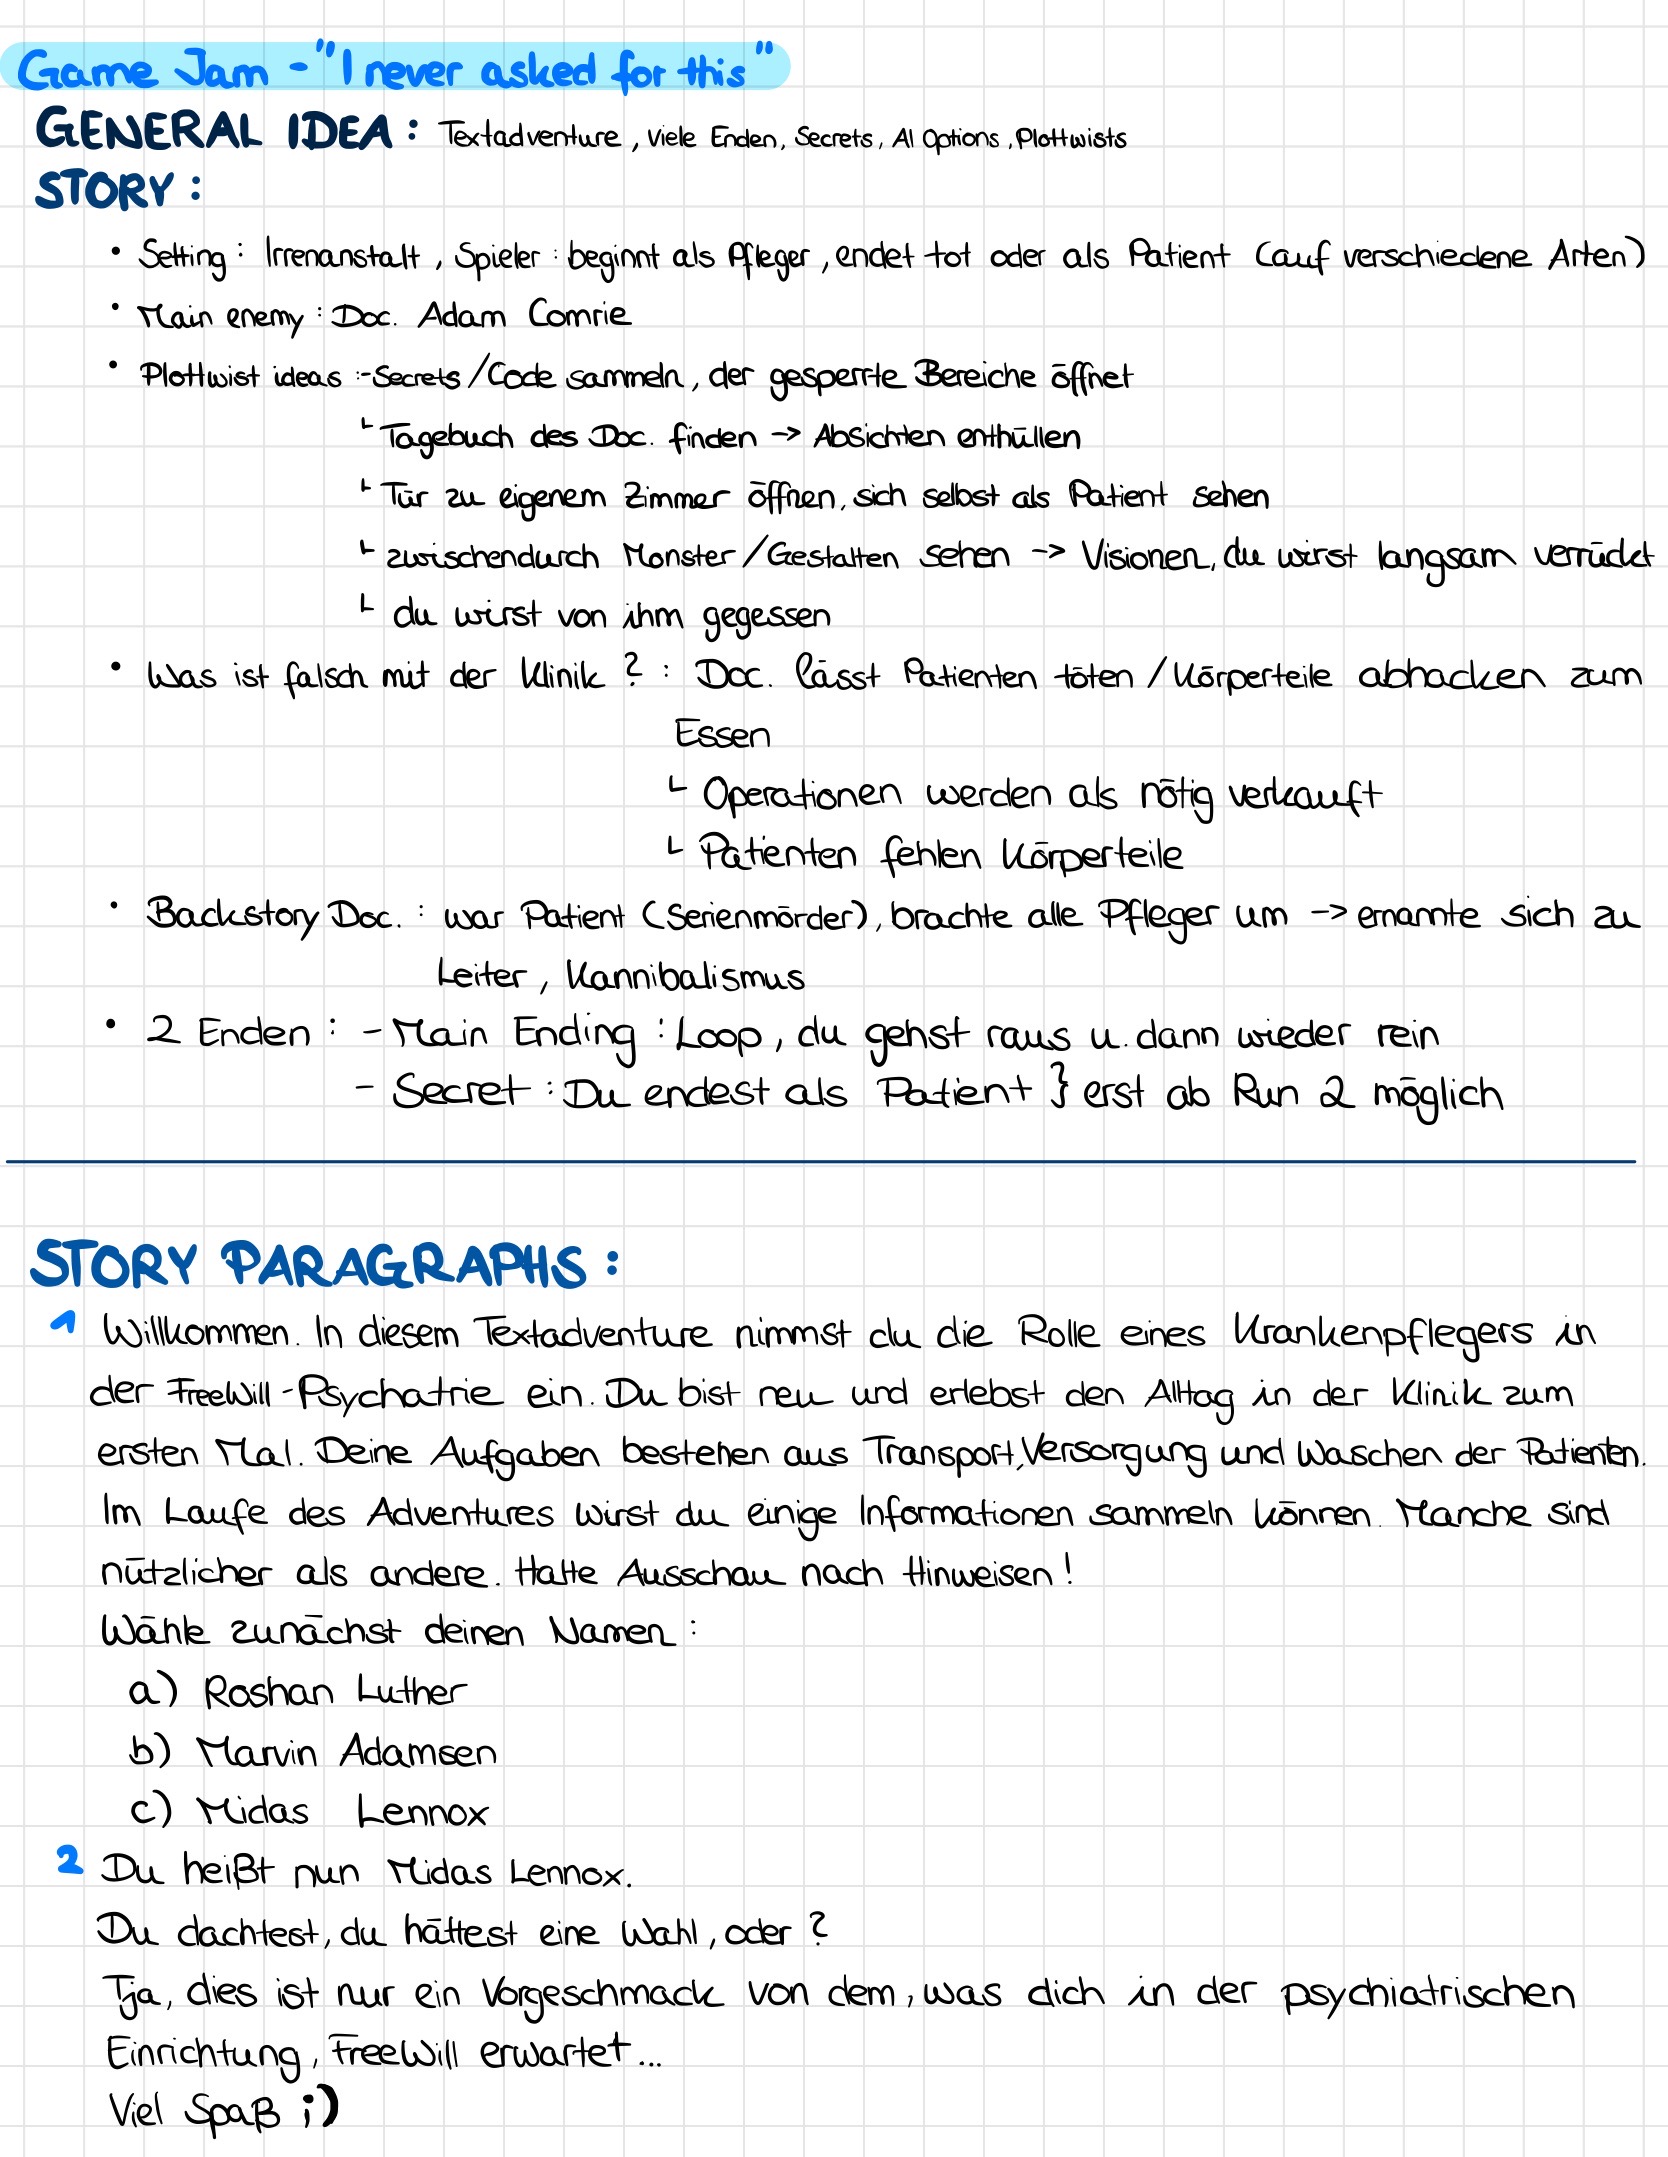 Game Jam - "I never asked for this"
GENERAL IDEA: Textadventure, Viele Enden, Secrets, AI Options, Plottwists
STORY:
• Setting: Irrenanstalt, Spieler: beginnt als Pfleger, endet tot oder als Patient (auf verschiedene Arten)
• Main enemy: Doc. Adam Comrie
• Plottwist ideas: -Secrets/Code sammeln, der gesperrte Bereiche öffnet
└ Tagebuch des Doc. finden -> Absichten enthüllen
└ Tür zu eigenem Zimmer öffnen, sich selbst als Patient sehen
└ zwischendurch Monster/Gestalten sehen -> Visionen, du wirst langsam verrückt
└ du wirst von ihm gegessen
• Was ist falsch mit der Klinik?: Doc. lässt Patienten töten/Körperteile abhacken zum
Essen
└ Operationen werden als nötig verkauft
└ Patienten fehlen Körperteile
• Backstory Doc.: war Patient (Serienmörder), brachte alle Pfleger um -> ernannte sich zu
Leiter, Kannibalismus
• 2 Enden: - Main Ending: Loop, du gehst raus u. dann wieder rein
- Secret: Du endest als Patient } erst ab Run 2 möglich
STORY PARAGRAPHS:
1 Willkommen. In diesem Textadventure nimmst du die Rolle eines Krankenpflegers in
der FreeWill-Psychatrie ein. Du bist neu und erlebst den Alltag in der Klinik zum
ersten Mal. Deine Aufgaben bestehen aus Transport, Versorgung und Waschen der Patienten.
Im Laufe des Adventures wirst du einige Informationen sammeln können. Manche sind
nützlicher als andere. Halte Ausschau nach Hinweisen!
Wähle zunächst deinen Namen:
a) Roshan Luther
b) Marvin Adamsen
c) Midas Lennox
2 Du heißt nun Midas Lennox.
Du dachtest, du hättest eine Wahl, oder?
Tja, dies ist nur ein Vorgeschmack von dem, was dich in der psychiatrischen
Einrichtung, FreeWill erwartet...
Viel Spaß ;)